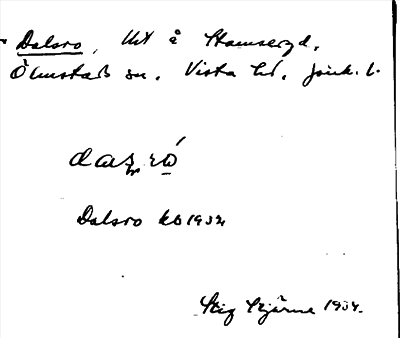 Dalsro, Ut å Stamseryd,
Ölmstads sn. Vista hd. Jönk. l.
daʂ, ró
Dalsro kb 1934
Stig Stjärne 1934.